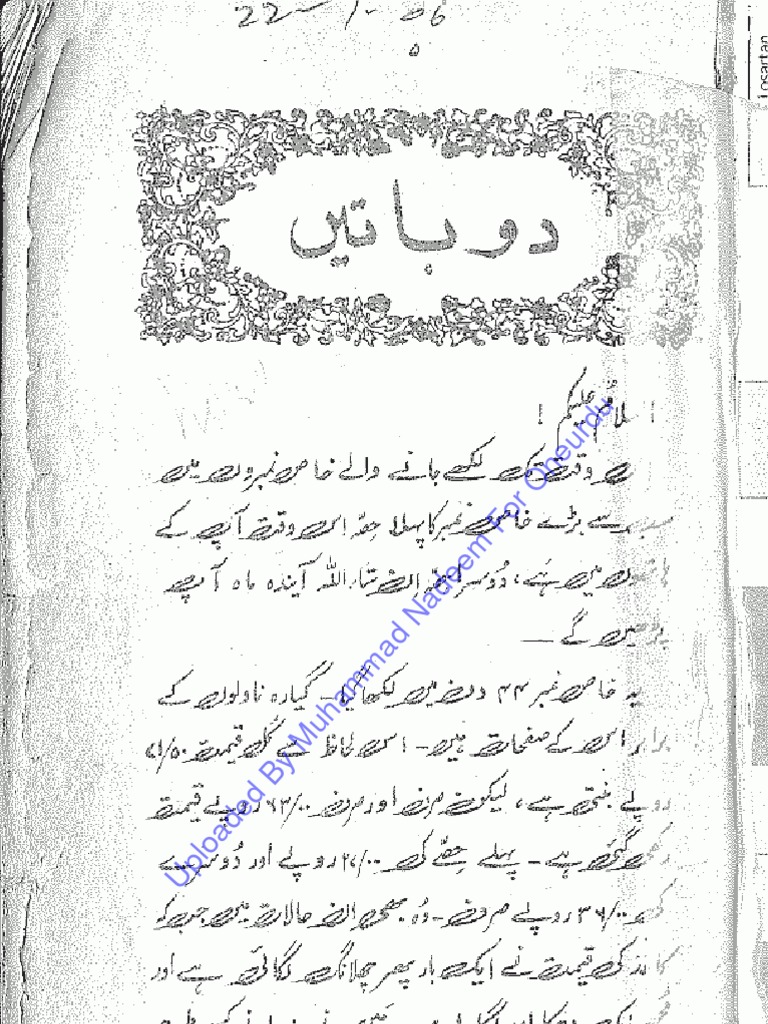 22-1-06
۵
دو باتیں
السلام علیکم !
اس وقت تک لکھے جانے والے خاص نمبروں میں
سب سے بڑے خاص نمبر کا پہلا حصّہ اس وقت آپ کے
ہاتھوں میں ہے، دُوسرا حصّہ ان شاء اللہ آیندہ ماہ آپ
پڑھیں گے —
یہ خاص نمبر ۴۴ دن میں لکھا گیا۔ گیارہ ناولوں کے
برابر اس کے صفحات ہیں۔ اس لحاظ سے کُل قیمت
روپے بنتی ہے، لیکن صرف اور صرف ۶۳/۰۰ روپے قیمت
رکھی گئی ہے۔ پہلے حصّے کی ۲۷/۰۰ روپے اور دُوسرے
کی ۳۶/۰۰ روپے صرف۔ وُہ بھی ان حالات میں جب کہ
کاغذ کی قیمت نے ایک بار پھر چھلانگ لگائی ہے اور
Uploaded By Muhammad Nadeem For Oneurdu
Losartan